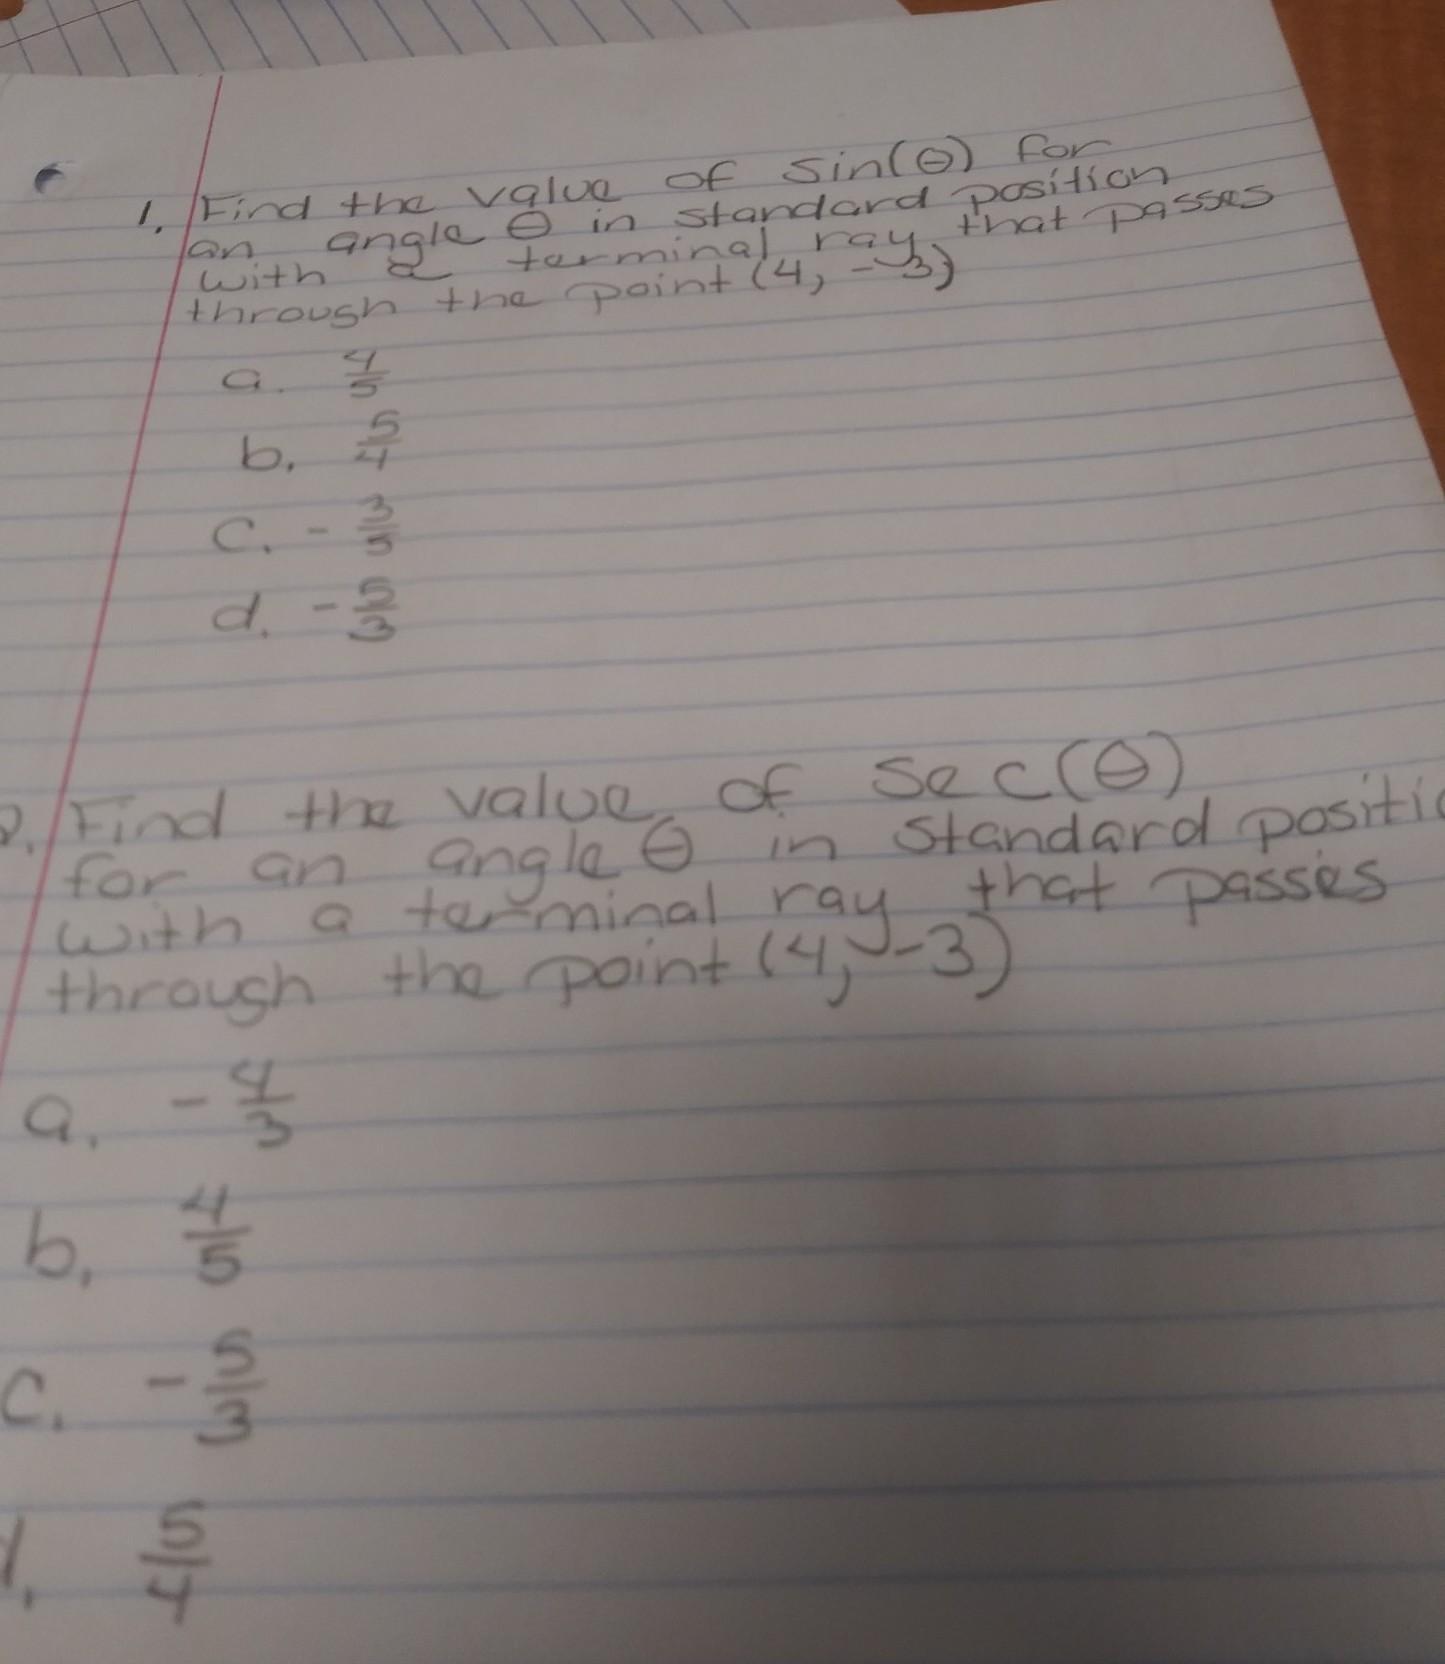 1. Find the value of sin(θ) for
an angle θ in standard position
with a terminal ray that passes
through the point (4, -3)
a. 4/5
b. 5/4
c. - 3/5
d. - 5/3
2. Find the value of sec(θ)
for an angle θ in standard positio
with a terminal ray that passes
through the point (4, -3)
a. - 4/3
b. 4/5
c. - 5/3
d. 5/4